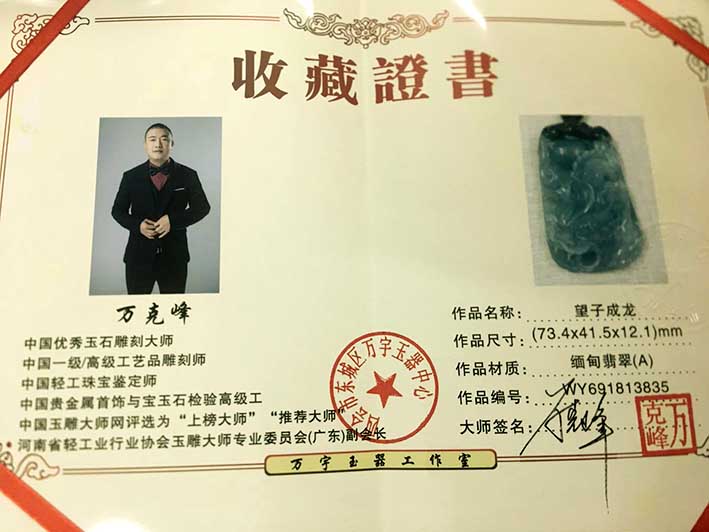 收藏證書
万克峰
中国优秀玉石雕刻大师
中国一级/高级工艺品雕刻师
中国轻工珠宝鉴定师
中国贵金属首饰与宝玉石检验高级工
中国玉雕大师网评选为“上榜大师”“推荐大师”
河南省轻工业行业协会玉雕大师专业委员会(广东)副会长
四会市东城区万宇玉器中心
作品名称: 望子成龙
作品尺寸: (73.4x41.5x12.1)mm
作品材质: 缅甸翡翠(A)
作品编号: WY691813835
大师签名: 万克峰
万克峰
万宇玉器工作室